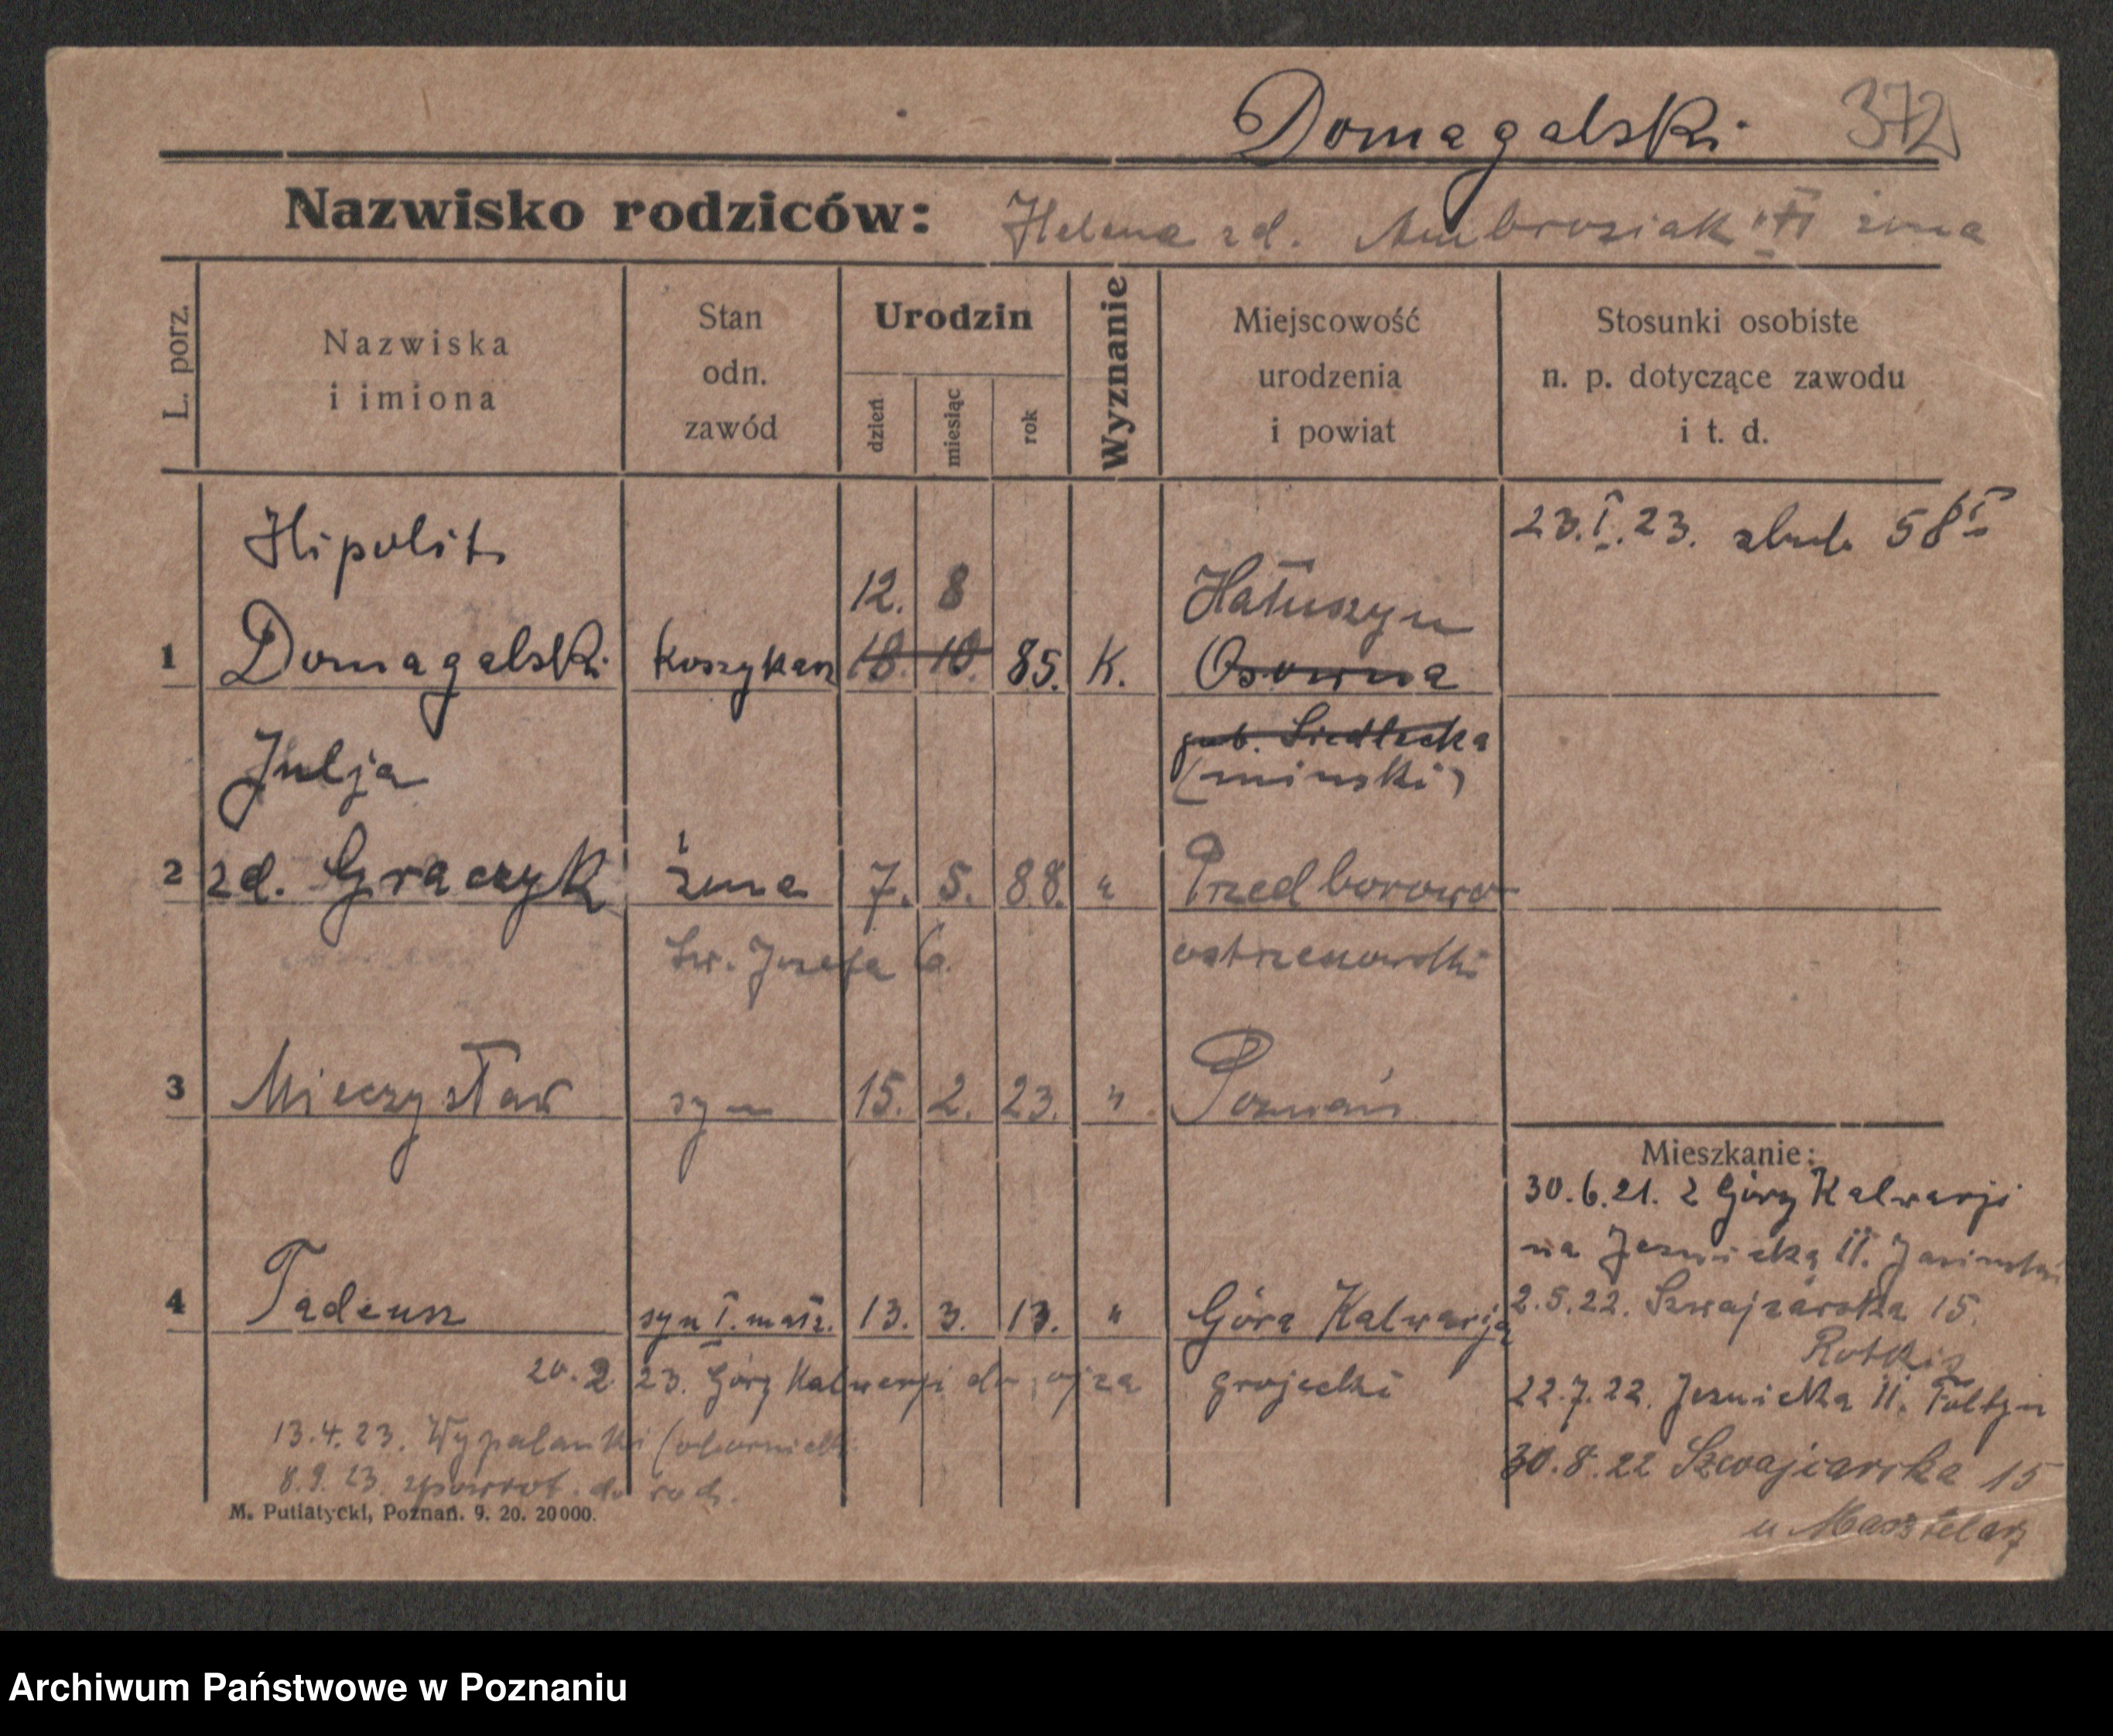 Domagalski 372
Nazwisko rodziców: Helena zd. Ambroziak II żona
L. porz.
Nazwiska
i imiona
Stan
odn.
zawód
Urodzin
dzień
miesiąc
rok
Wyznanie
Miejscowość
urodzenia
i powiat
Stosunki osobiste
n. p. dotyczące zawodu
i t. d.
23.I.23. 58 I
Hipolit 12. 8 Hatuszyn
1 Domagalski koszykarz 18. 10. 85. K. Osowna
gub. Siedlecka
Julja (minski)
2 zd. Graczyk żona 7. 5. 88. " Przedborowo
Św. Józefa 6. ostrzeszowski
3 Mieczysław syn 15. 2. 23. " Poznań
Mieszkanie:
30.6.21. z Góry Kalwarji
na Jezuicką 11.
4 Tadeusz syn I. małż. 13. 3. 13. " Góra Kalwarja
2.5.22. Szwajcarska 15.
20.2.23. Góry Kalwarji do ojca grojecki
22.7.22. Jezuicka 11.
13.4.23. Wypalanki (obornicki
30.8.22 Szwajcarska 15
8.9.23. zpowrot. do rodz.
u Masztelarz
M. Putiatycki, Poznań. 9. 20. 20000.
Archiwum Państwowe w Poznaniu